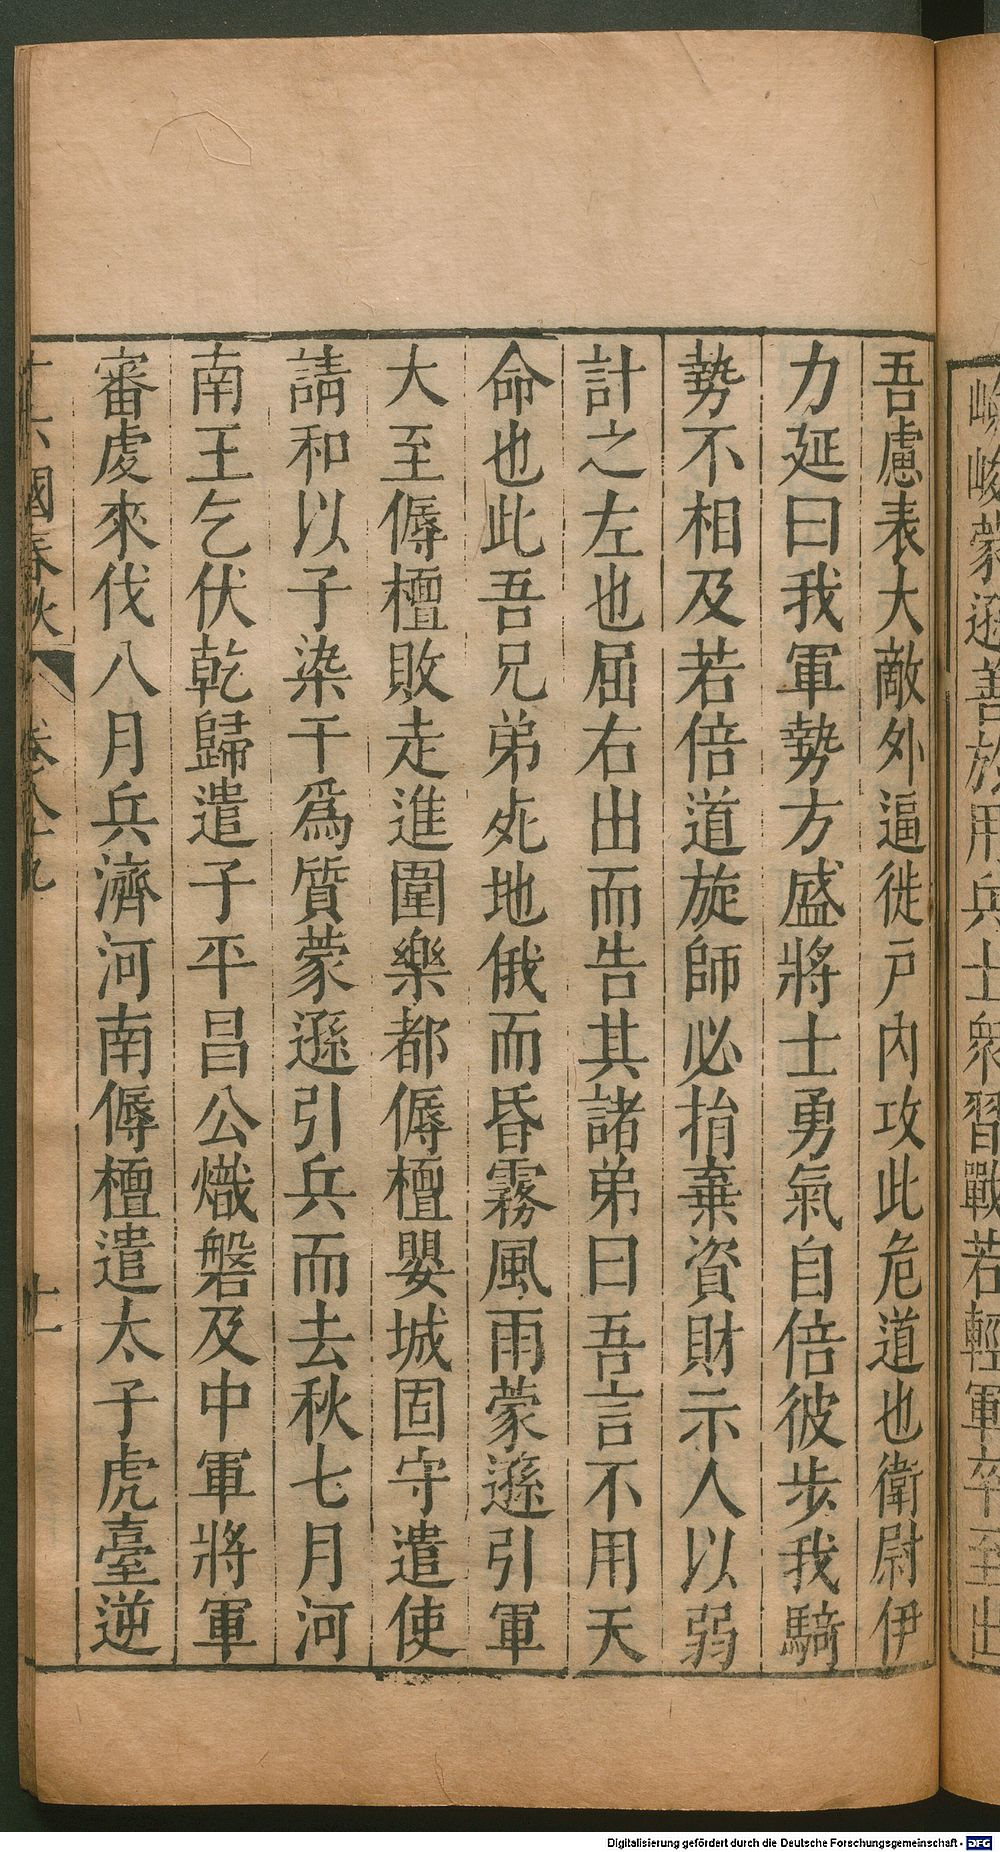 嶮峻蒙遜善於用兵士衆習戰若輕軍卒至出
吾慮表大敵外逼徙戶內攻此危道也衛尉伊
力延曰我軍勢方盛將士勇氣自倍彼步我騎
勢不相及若倍道旋師必捐棄資財示人以弱
計之左也屈右出而告其諸弟曰吾言不用天
命也此吾兄弟死地俄而昏霧風雨蒙遜引軍
大至傉檀敗走進圍樂都傉檀嬰城固守遣使
請和以子染干爲質蒙遜引兵而去秋七月河
南王乞伏乾歸遣子平昌公熾磐及中軍將軍
審虔來伐八月兵濟河南傉檀遣太子虎臺逆
十六國春秋 卷八十九 十一
Digitalisierung gefördert durch die Deutsche Forschungsgemeinschaft - DFG